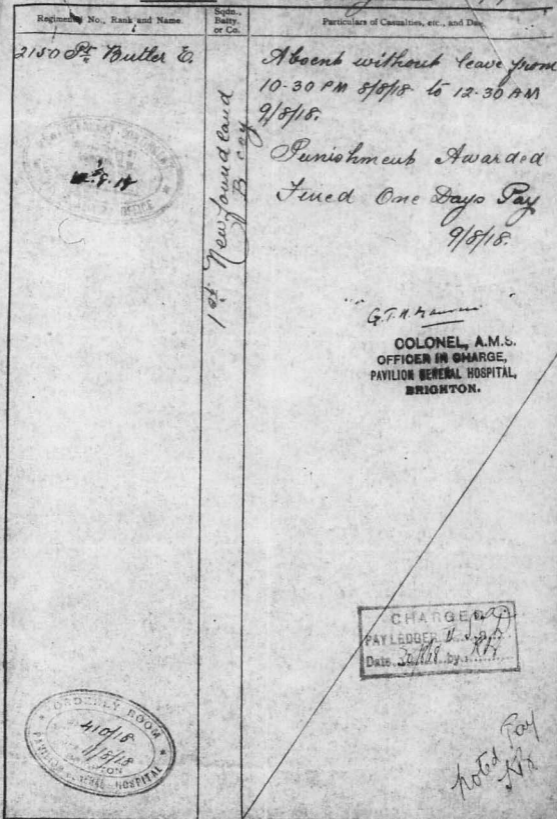 Regimental No., Rank and Name.
Sqdn., Batty. or Co.
Particulars of Casualties, etc., and Date
2150 Pte Butler E.
1st Newfoundland
B Coy
Absent without leave from
10-30 PM 8/8/18 to 12-30 AM
9/8/18.
Punishment Awarded
Fined One Days Pay
9/8/18.
G.T.K.
COLONEL, A.M.S.
OFFICER IN CHARGE,
PAVILION GENERAL HOSPITAL,
BRIGHTON.
CHARGED
PAY LEDGER
Date by
ORDERLY ROOM
410/18
PAVILION GENERAL HOSPITAL
noted Pay